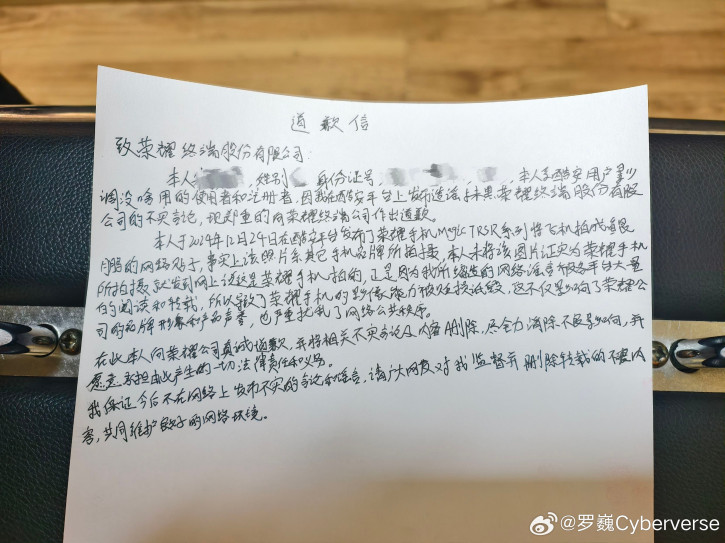 道歉信
致荣耀终端股份有限公司:
本人 ,性别 身份证号, , ,本人系酷安用户
调没啥用的使用者和注册者,因我在酷安平台上发布造谣 荣耀终端股份有限
公司的不实言论,现郑重的向荣耀终端公司作出道歉。
本人于2024年12月24日在酷安平台发布了荣耀手机Magic7RSR系列将飞机拍成
的网络贴子,事实上该照片系其它手机品牌所拍摄,本人未将该图片证实为荣耀手机
所拍摄就发到网上说这是荣耀手机拍的,正是因为我所编造的网络谣言被各平台大量
的阅读和转载,所以导致了荣耀手机的影像能力被 诋毁,这不仅影响了荣耀公
司的品牌形象和产品声誉,也严重扰乱了网络公共秩序。
在此本人向荣耀公司真诚道歉,并将相关不实言论及内容删除,尽全力消除不良影响,并
愿意承担由此产生的一切法律责任和义务。
我保证今后不在网络上发布不实的言论和谣言,请广大网友对我监督并删除转载的不良内
容,共同维护良好的网络环境。
@罗巍Cyberverse